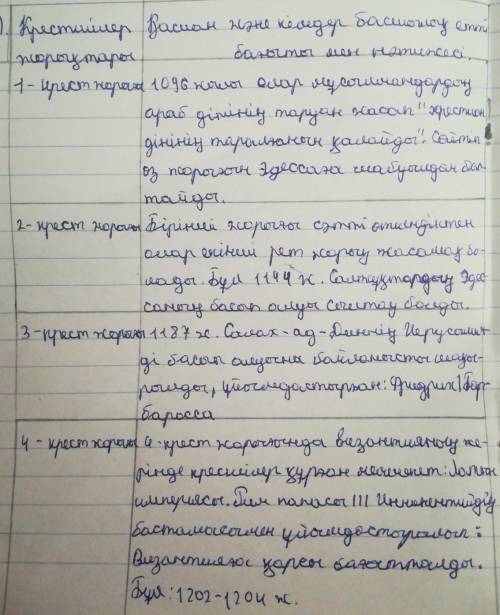 Крестшілер
жорықтары
Қашан және кімдер басшылық етті
бағыты мен нәтижесі.
1 - крест жорығы
1096 жылы олар мұсылмандардың
араб дінінің таруын жасап "христиан
дінінің таралғанын қалайды". Сөйтіп
өз жорығын Эдессаға шабуылдан бас-
тайды.
2 - крест жорығы
Бірінші жорығы сәтті өткендіктен
олар екінші рет жорық жасамақ бо-
лады. Бұл 1144 ж. Салжұқтардың Эдес-
саның басып алуы сылтау болды.
3 - крест жорығы
1187 ж. Салах-ад-Диннің Иерусалим-
ді басып алуына байланысты шақы-
рылды, ұйымдастырған: Фридрих I Бар-
баросса
4 - крест жорығы
4 - крест жорығында византияның же-
рінде крестшілер құрған мемлекет: Латын
империясы. Рим папасы III Иннокентийдің
бастамасымен ұйымдастырылып:
Византияға қарсы бағытталды.
Бұл: 1202-1204 ж.